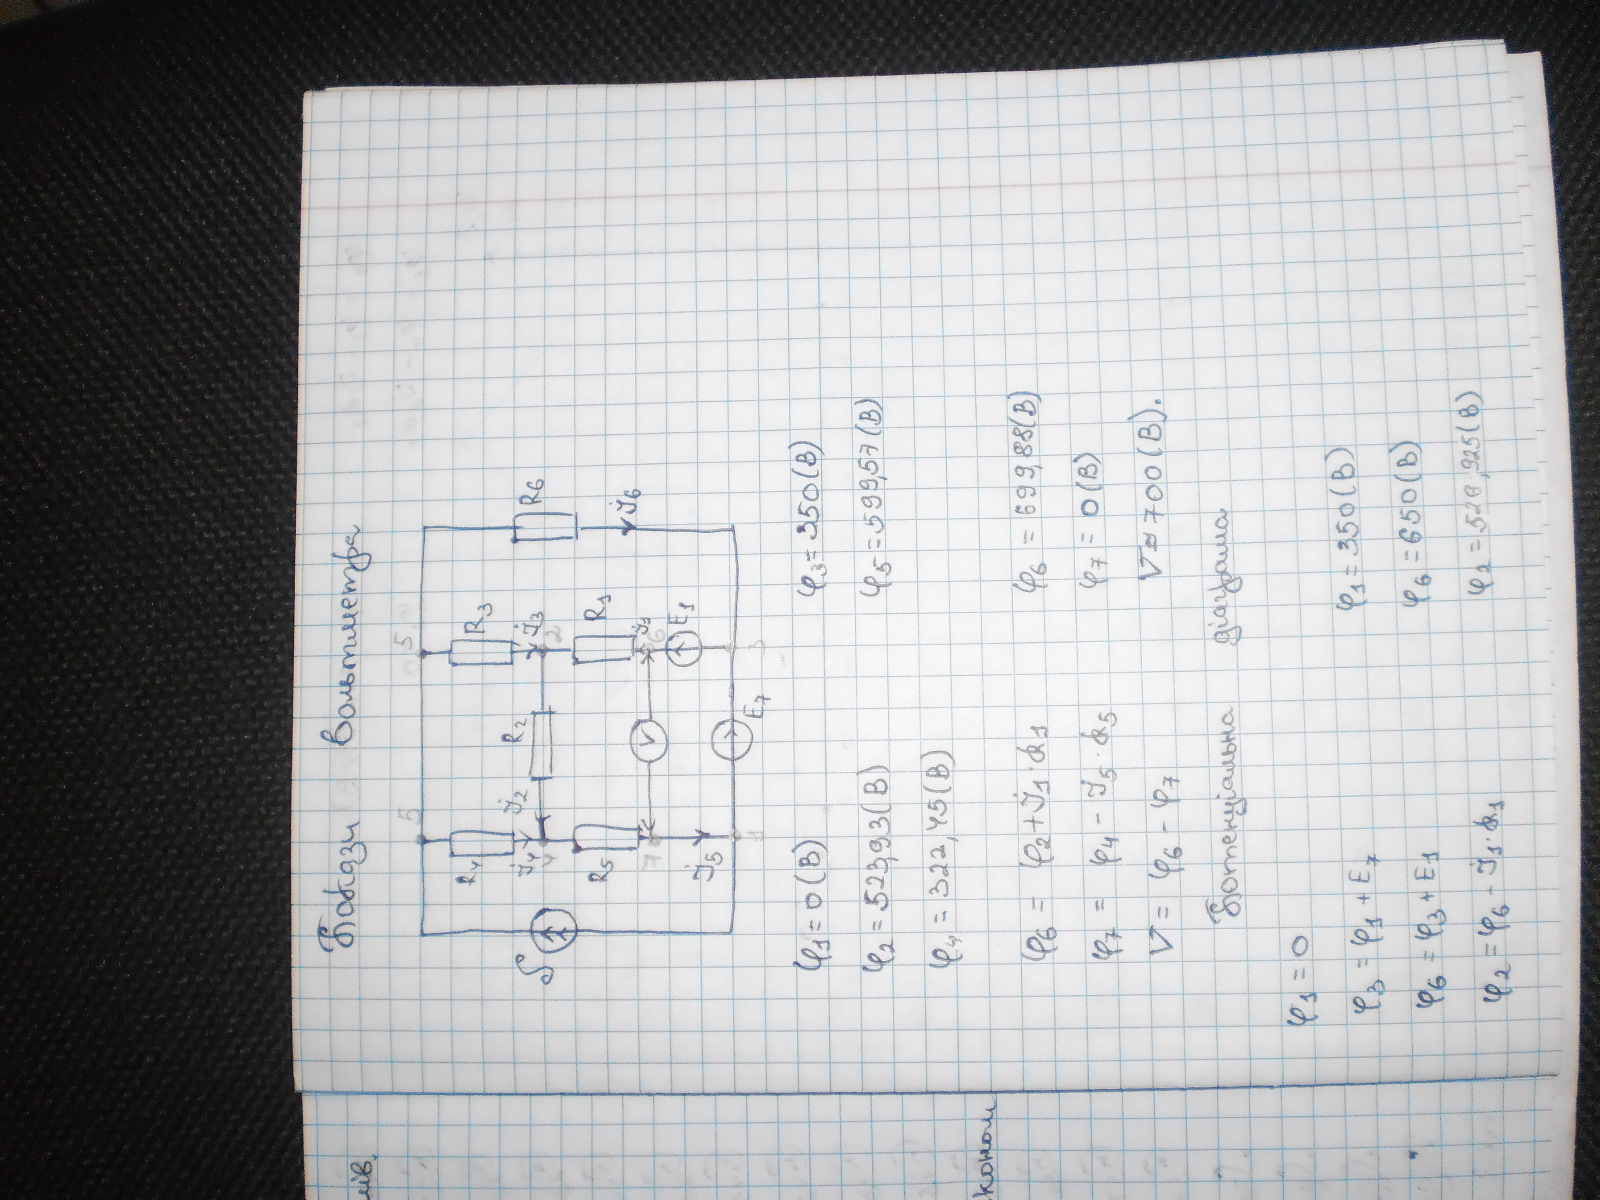 Покази Вольтметра
5 5
R4 R3
J4 J2 R2 J3 R6
4 2
R5 R1 J6
V
7 J1 6
J5 E1
1 E7 3
φ1 = 0 (В) φ3 = 350 (В)
φ2 = 523,93 (В) φ5 = 599,57 (В)
φ4 = 322,45 (В)
φ6 = φ2 + J1 · R1 φ6 = 699,88 (В)
φ7 = φ4 - J5 · R5 φ7 = 0 (В)
V = φ6 - φ7 V ≈ 700 (В).
Потенціальна діаграма
φ1 = 0
φ3 = φ1 + E7 φ1 = 350 (В)
φ6 = φ3 + E1 φ6 = 650 (В)
φ2 = φ6 - J1 · R1 φ2 = 523,925 (В)